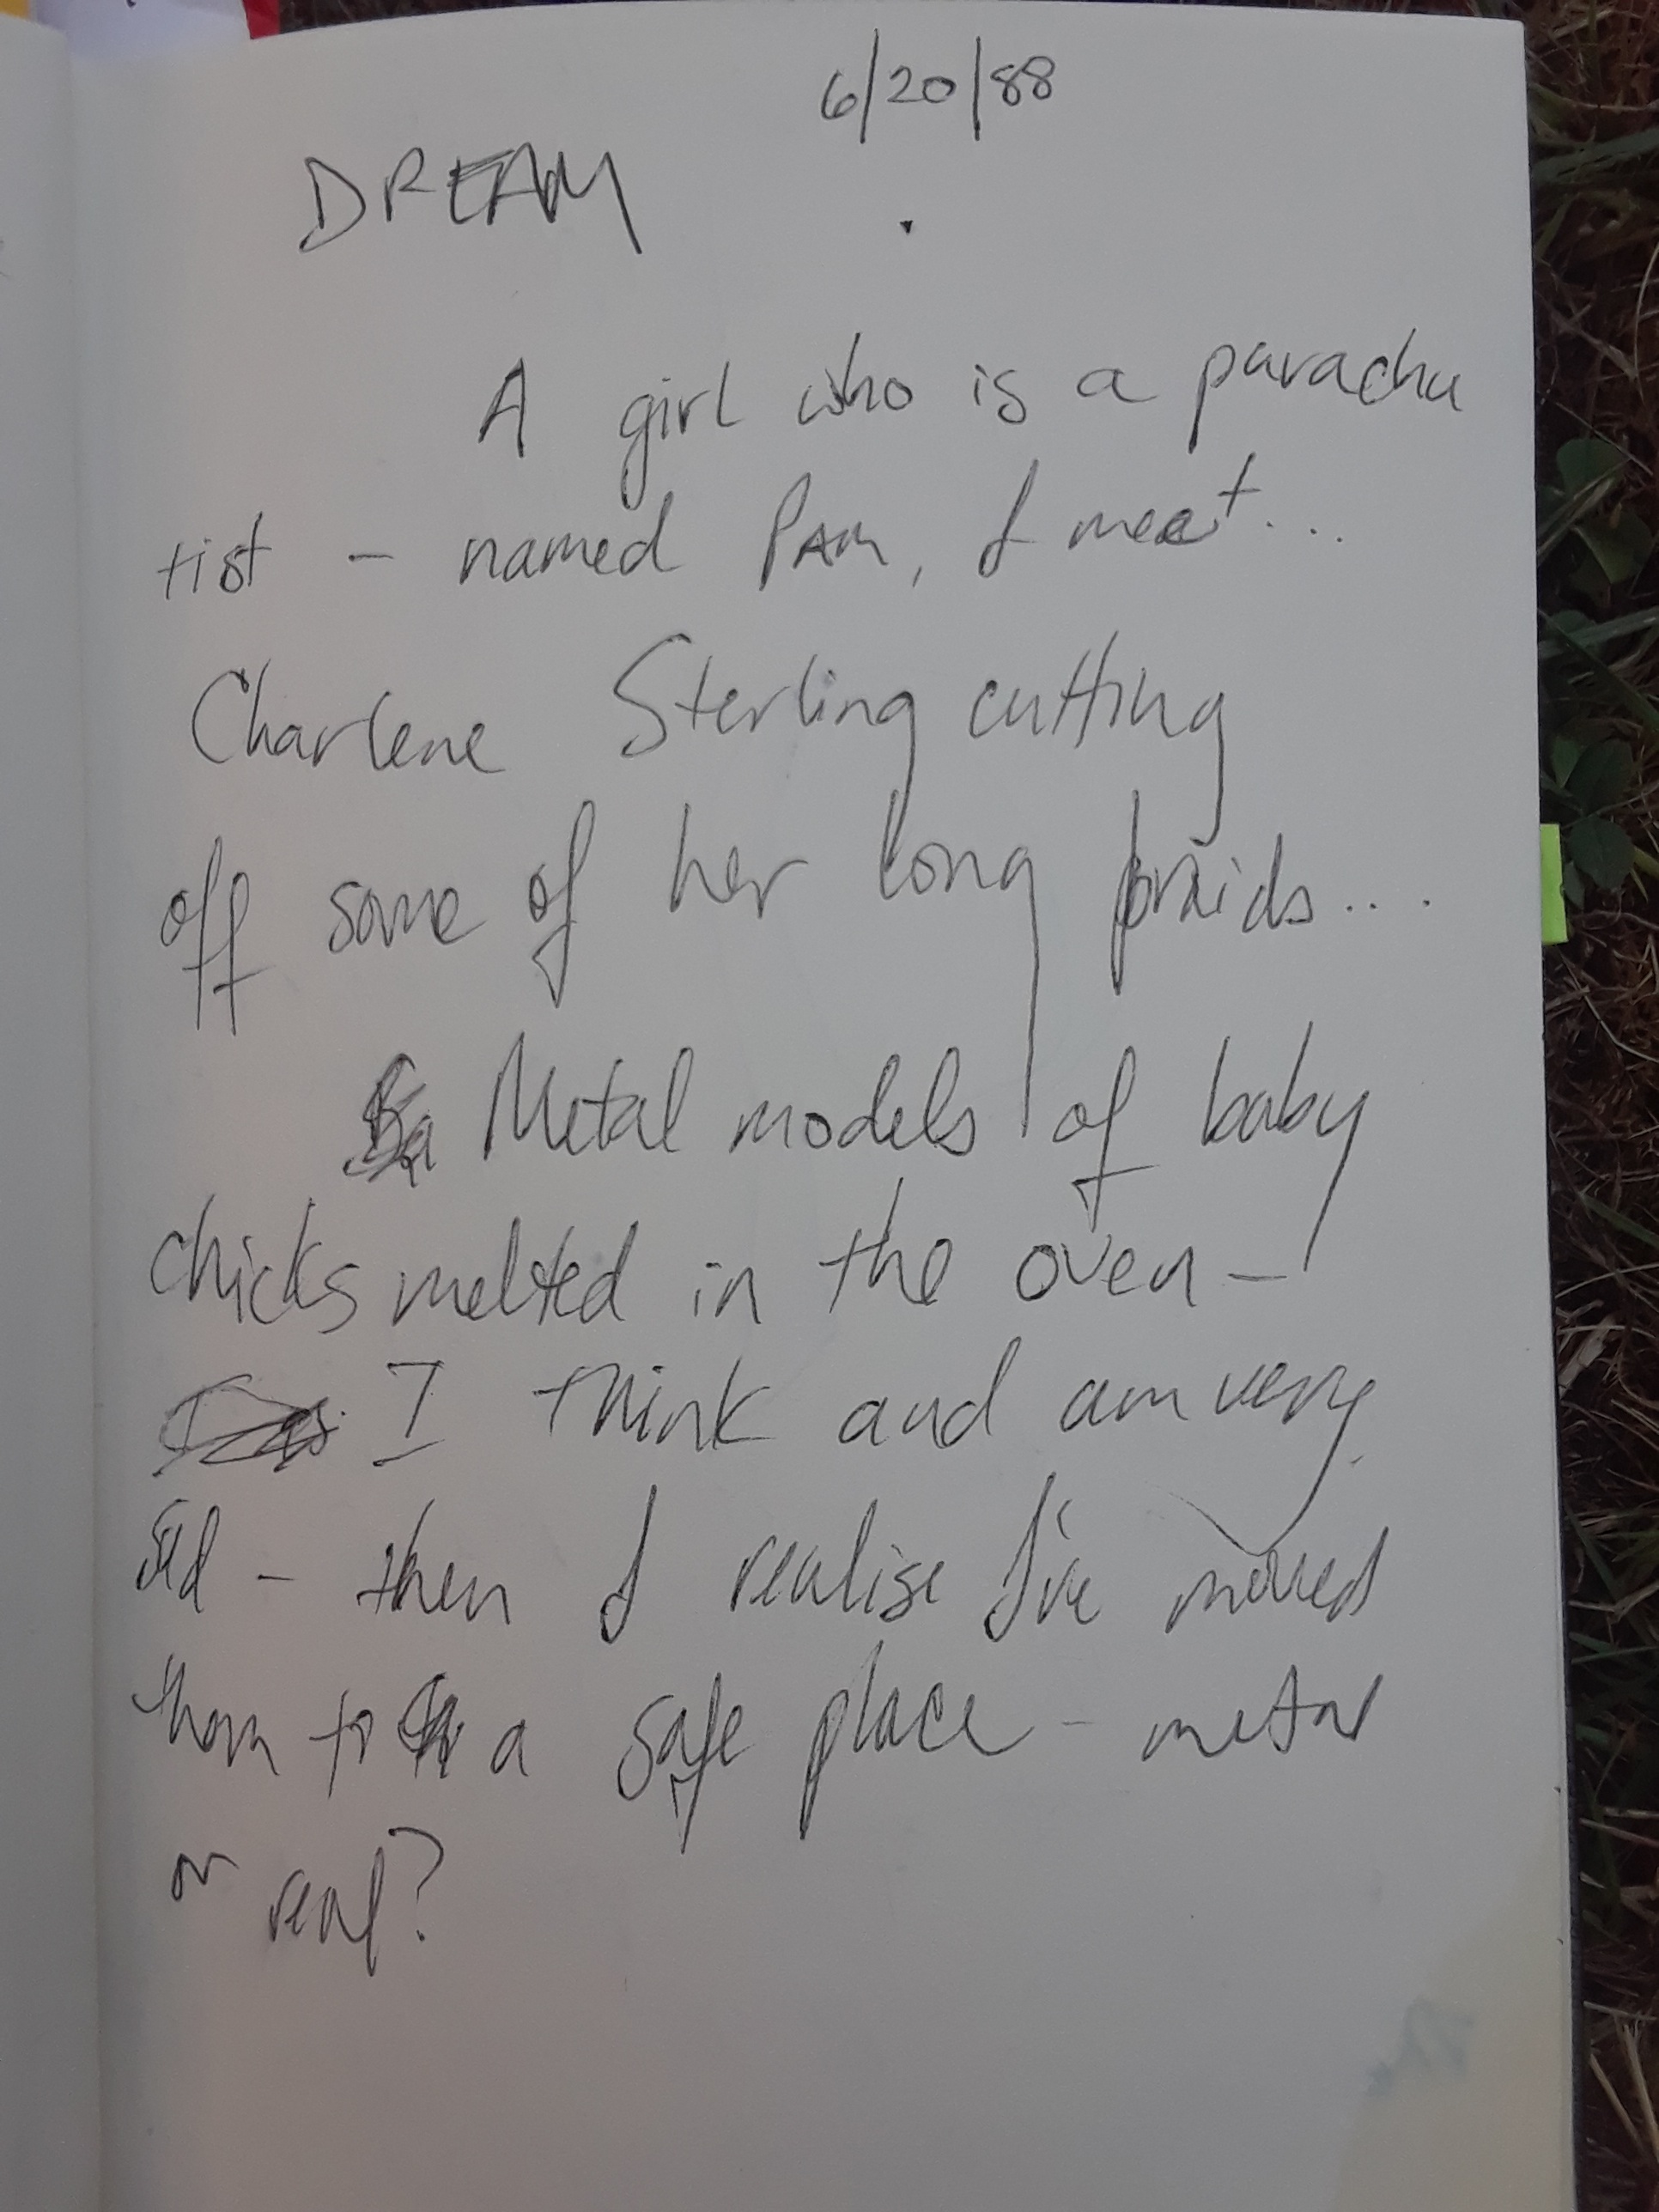 6/20/88
DREAM
A girl who is a parachu
tist - named PAM, I meet...
Charlene Sterling cutting
off some of her long braids....
Metal models of baby
chicks melted in the oven -
I think and am very
sad - then I realise I've moved
them to a safe place - metal
or real?